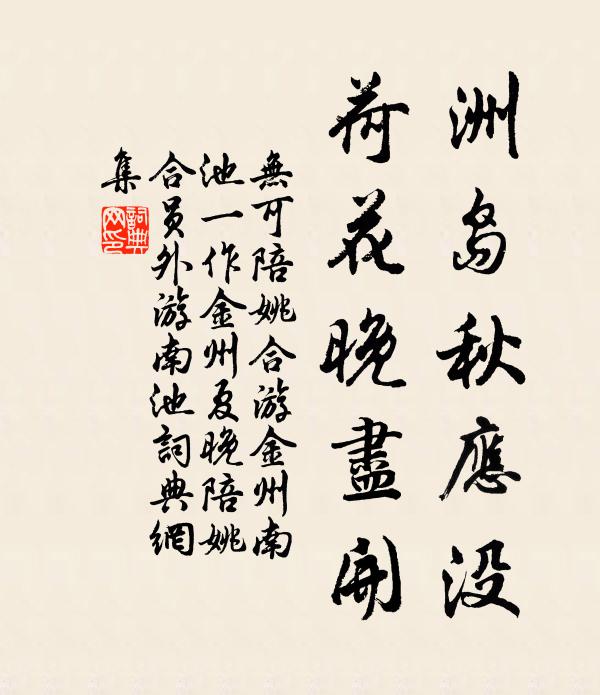 洲島秋應沒
荷花晚盡開
無可陪姚合游金州南
池一作金州夏晚陪姚
合员外游南池詞典網
集
詞典网印